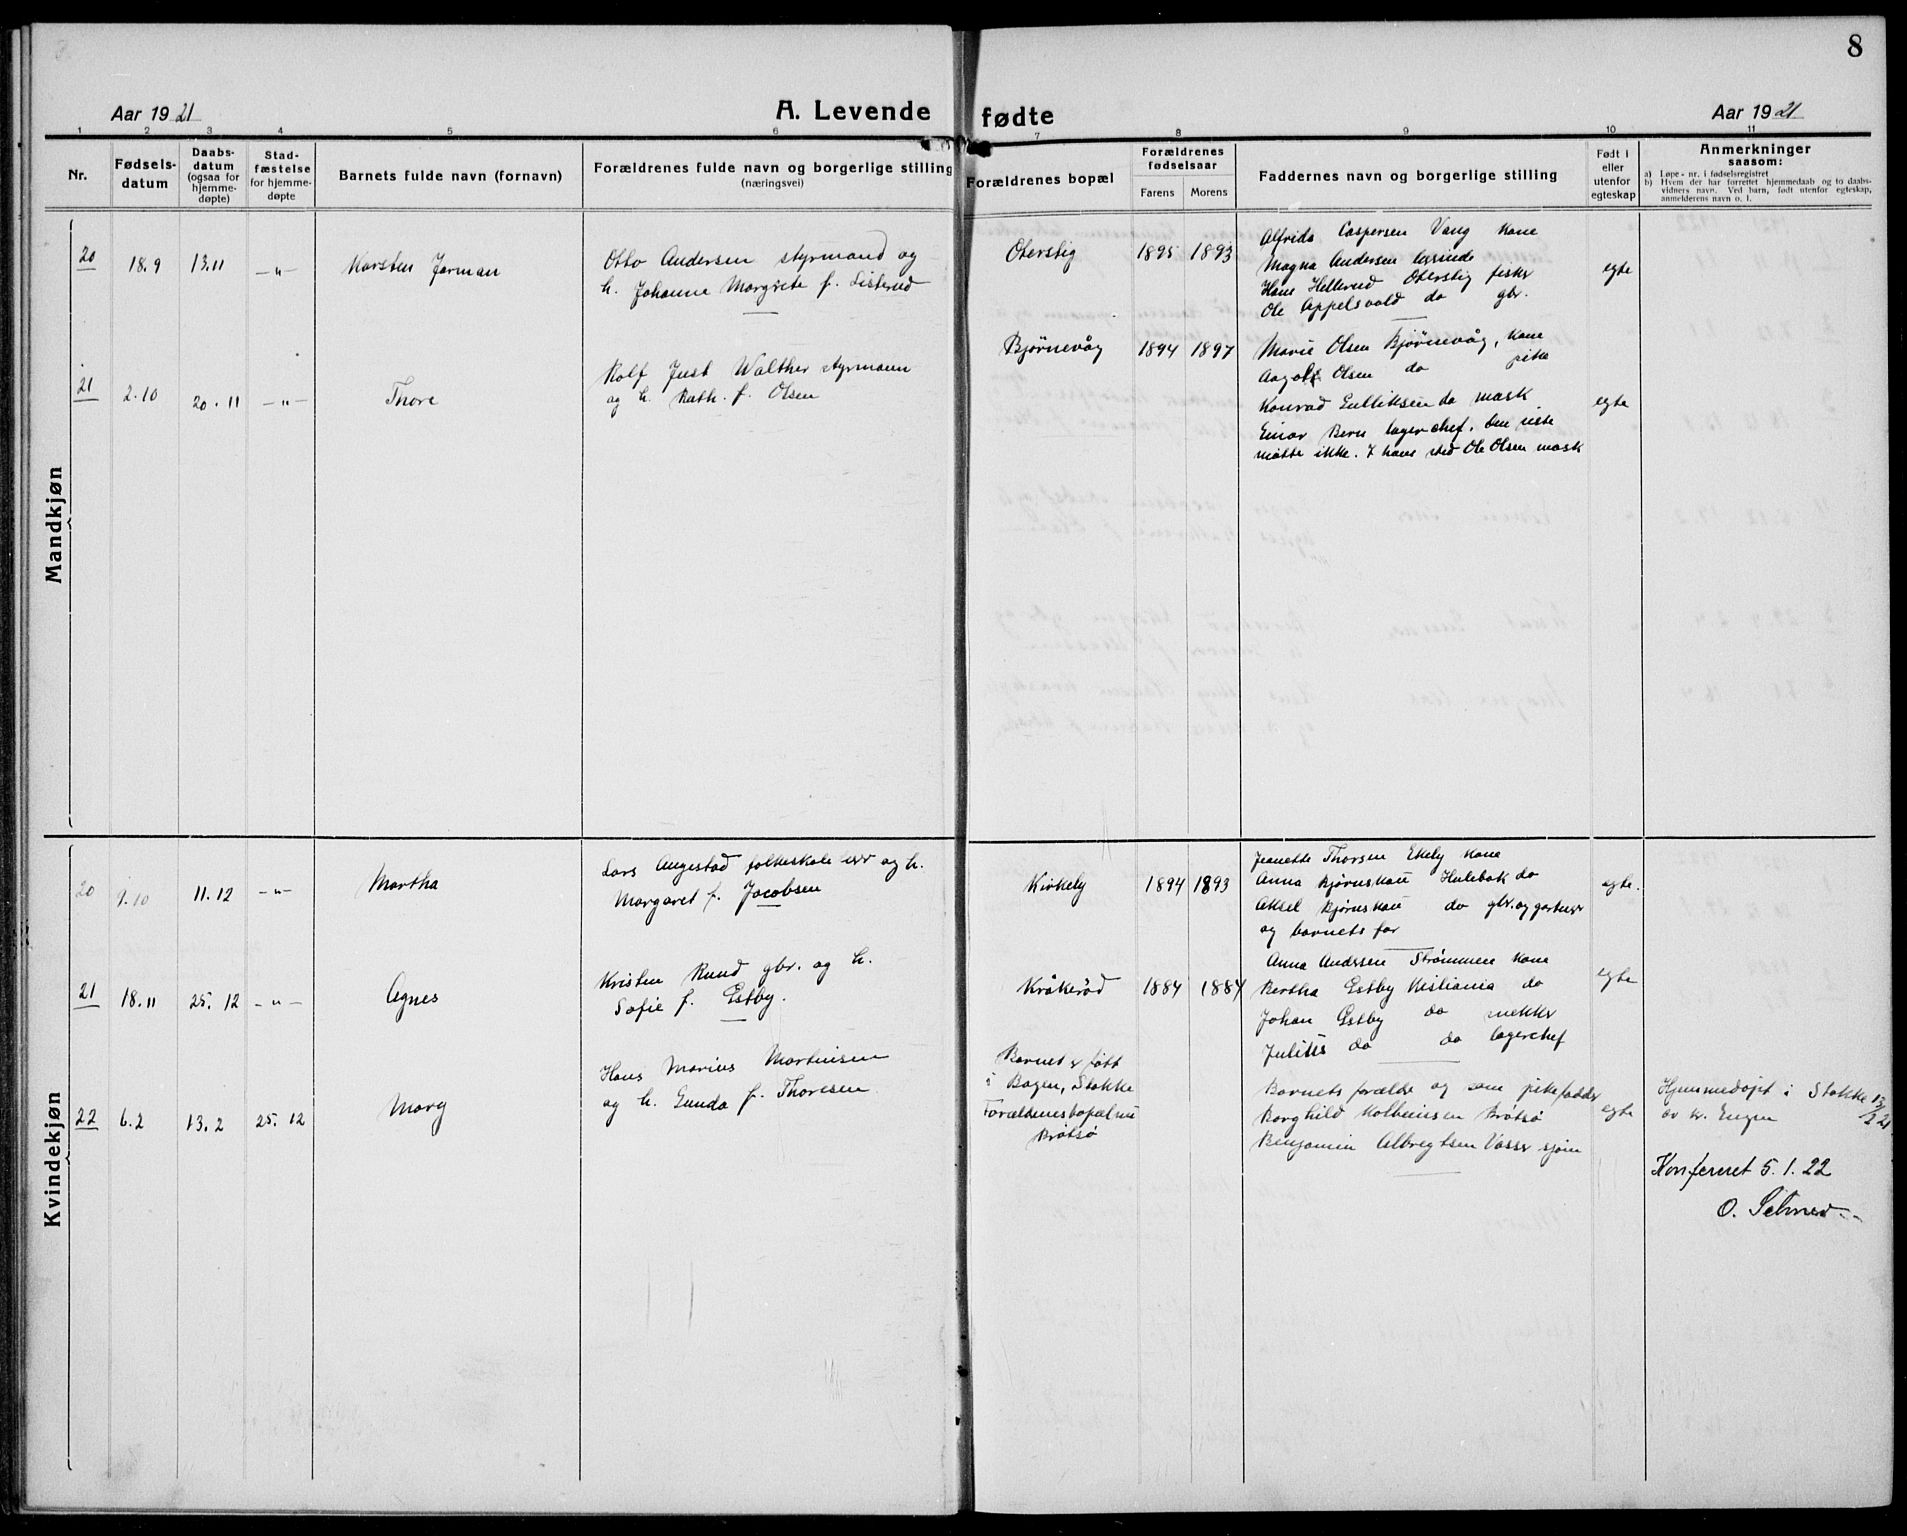 8
Aar 1921
A. Levende fødte
Aar 1921
1 2 3 4 5 6 7 8 9 10 11
Nr.
Fødsels-
datum
Daabs-
datum
(ogsaa for
hjemme-
døpte)
Stad-
fæstelse
for hjemme-
døpte
Barnets fulde navn (fornavn)
Forældrenes fulde navn og borgerlige stilling
(næringsvei)
Forældrenes bopæl
Forældrenes
fødselsaar
Farens Morens
Faddernes navn og borgerlige stilling
Født i
eller
utenfor
egteskap
Anmerkninger
saasom:
a) Løpe-nr. i fødselsregistret
b) Hvem der har forrettet hjemmedaab og to daabs-
vidners navn. Ved barn, født utenfor egteskap,
anmelderens navn o. l.
Mandkjøn
20 18.9 13.11 —„— Karsten Jarman
Otto Andersen styrmand og
h. Johanne Margrete f. Listerud
Oterstig 1895 1893
Alfrida Caspersen Vang kone
Magna Andersen
Hans Hellerud Oterstig fisker
Ole Appelsvold do gbr.
egte
21 2.10 20.11 —„— Thore
Rolf Just Walther styrmann
og h. Kath. f. Olsen
Bjørnevåg 1894 1897
Marie Olsen Bjørnevåg, kone
Olsen do pike
Konrad Gulliksen do mask
Einar Bern lagerchef. Den siste
møtte ikke. I hans sted Ole Olsen mask
egte
Kvindekjøn
20 9.10 11.12 —„— Martha
Lars Angestad folkeskolelærer og h.
Margaret f. Jacobsen
Kirkely 1894 1893
Jeanette Thorsen Ekely kone
Anna Bjørnskau Hulebak do
Aksel Bjørnskau do gbr. og gartner
og barnets far
egte.
21 18.11 25.12 —„— Agnes
Kristen Rund gbr. og h.
Sofie f. Estby.
Kråkerød 1884 1884
Anna Andersen Strømmen kone
Bertha Estby Kristiania do
Johan Estby do
Julius do do lagerchef
egte
22 6.2 13.2 25.12 Marg
Hans Marius Martinisen
og h. Gunda f. Thoresen
Barnet er født
i Bogen, Stokke
Forældrenes bopæl nu
Brøtsø
Barnets forældre og som pikefadder
Borghild Brøtsø
Benjamin Albregtsen Vasser sjøm
egte
Hjemmedøpt i Stokke 13/2 21
av kr. Engen
Konfereret 5.1.22